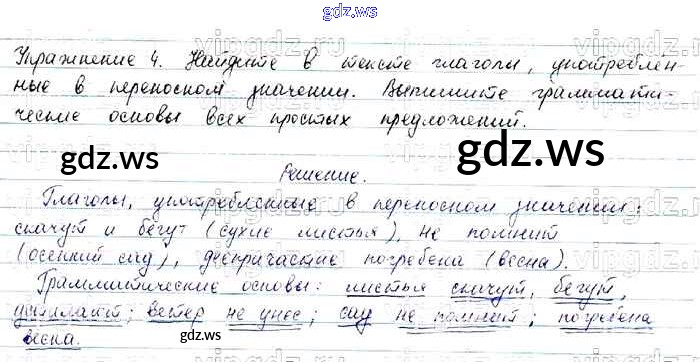 gdz.ws
Упражнение 4. Найдите в тексте глаголы, употреблен-
ные в переносном значении. Выпишите граммати-
ческие основы всех простых предложений.
gdz.ws gdz.ws
Решение.
Глаголы, употребленные в переносном значении:
скачут и бегут (сухие листья), не помнит
(осенний сад), погребена (весна).
Грамматические основы: листья скачут, бегут,
устилают; ветер не унес; сад не помнит; погребена
весна.
gdz.ws